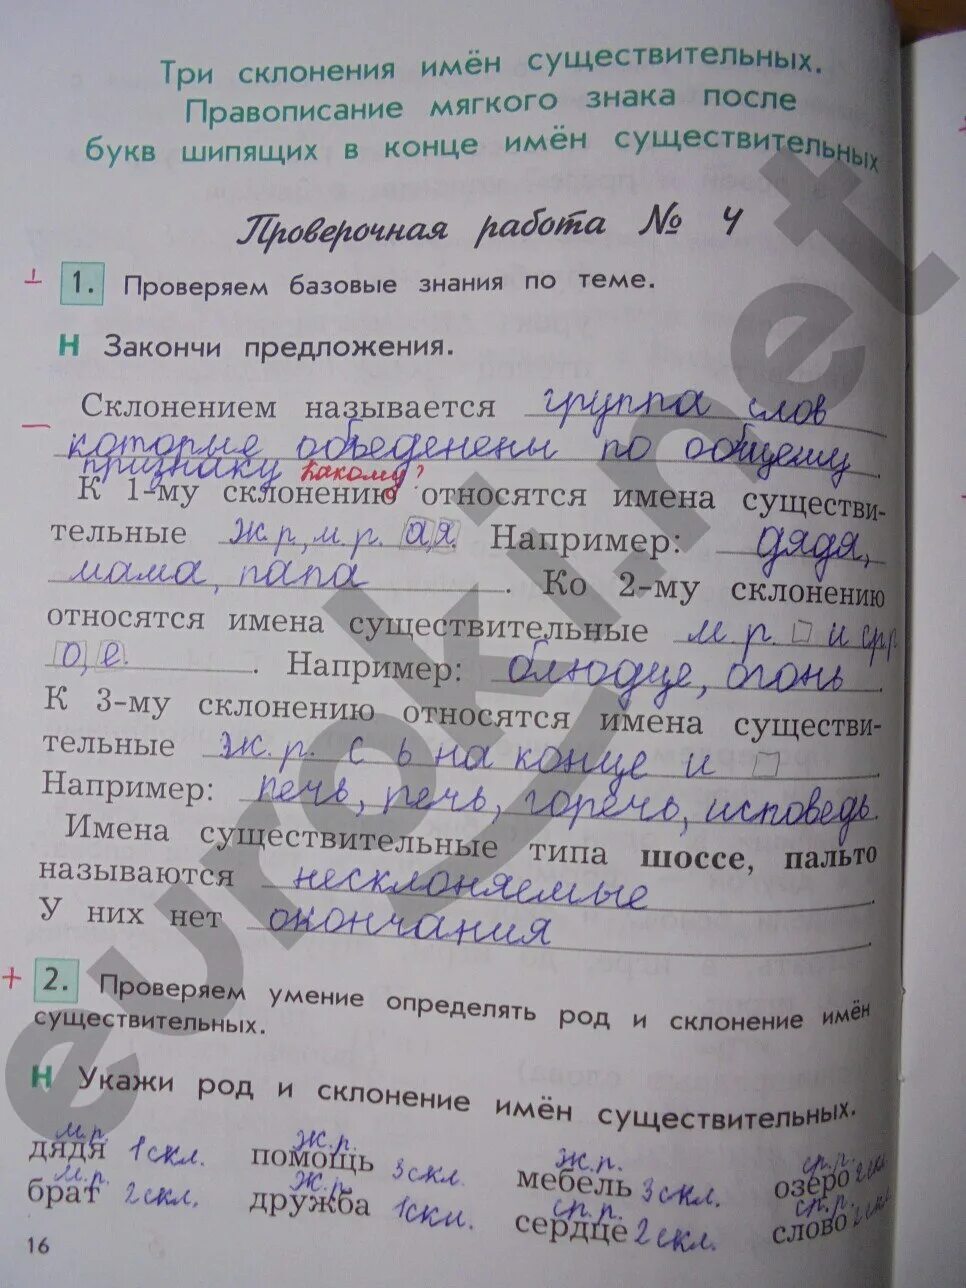 Три склонения имён существительных.
Правописание мягкого знака после
букв шипящих в конце имён существительных
Проверочная работа № 4
1. Проверяем базовые знания по теме.
Н Закончи предложения.
Склонением называется группа слов
которые объеденены по общему
признаку какому?
К 1-му склонению относятся имена существи-
тельные ж.р., м.р. а,я. Например: дядя,
мама, папа. Ко 2-му склонению
относятся имена существительные м.р. □ и ср.р.
о, е. Например: блюдце, огонь.
К 3-му склонению относятся имена существи-
тельные ж.р. с ь на конце и □.
Например: печь, речь, горечь, исповедь.
Имена существительные типа шоссе, пальто
называются несклоняемые.
У них нет окончания.
+ 2. Проверяем умение определять род и склонение имён
существительных.
Н Укажи род и склонение имён существительных.
м.р. ж.р. ж.р. ср.р.
дядя 1 скл. помощь 3 скл. мебель 3 скл. озеро 2 скл.
м.р. ж.р. ср.р. ср.р.
брат 2 скл. дружба 1 скл. сердце 2 скл. слово 2 скл.
16
euroki.net